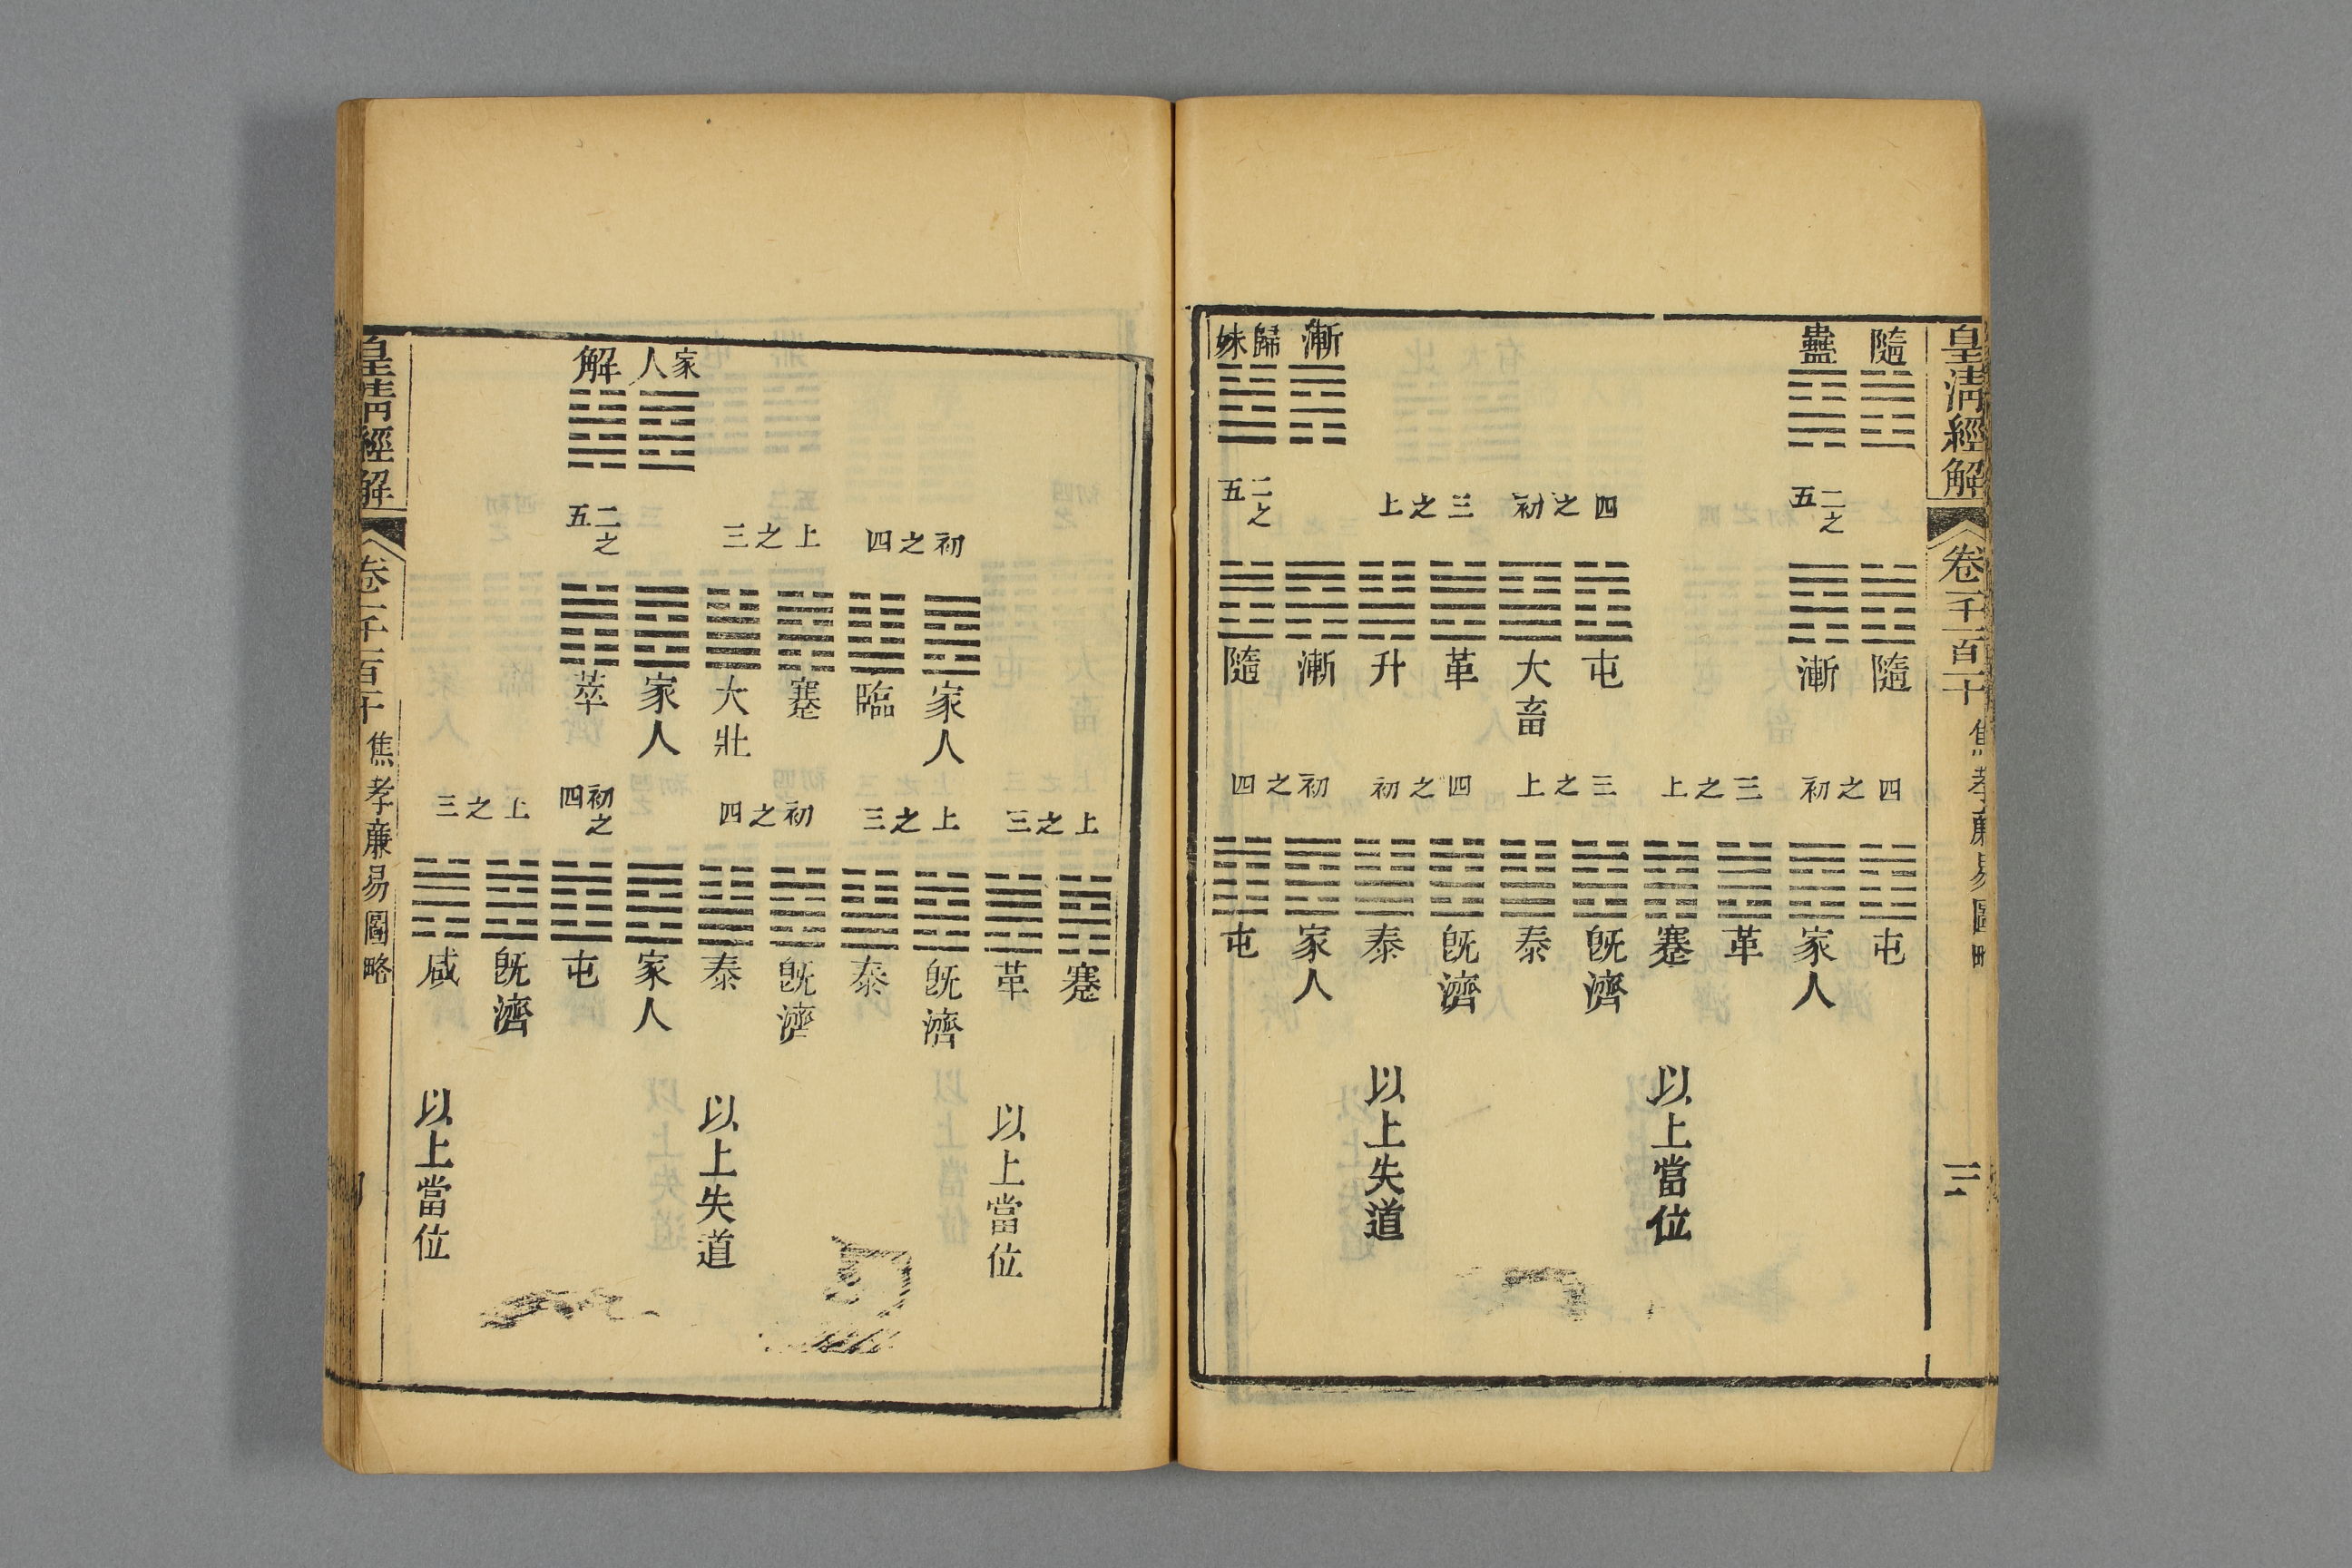 皇淸經解
卷一千一百十
焦孝廉易圖略
三
隨
蠱
漸
歸妹
二之五
四之初
三之上
二之五
隨
漸
屯
大畜
革
升
漸
隨
四之初
三之上
三之上
四之初
初之四
屯
家人
革
蹇
旣濟
泰
旣濟
泰
家人
屯
以上當位
以上失道
家人
解
初之四
上之三
二之五
家人
臨
蹇
大壯
家人
萃
上之三
上之三
初之四
初之四
上之三
蹇
革
旣濟
泰
旣濟
泰
家人
屯
旣濟
咸
以上當位
以上失道
以上當位
皇淸經解
卷一千一百十
焦孝廉易圖略